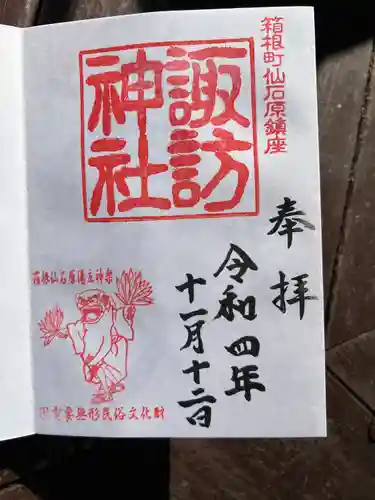 箱根町仙石原鎮座
諏訪
神社
奉拝
令和四年
十一月十二日
箱根仙石原湯立神楽
国重要無形民俗文化財